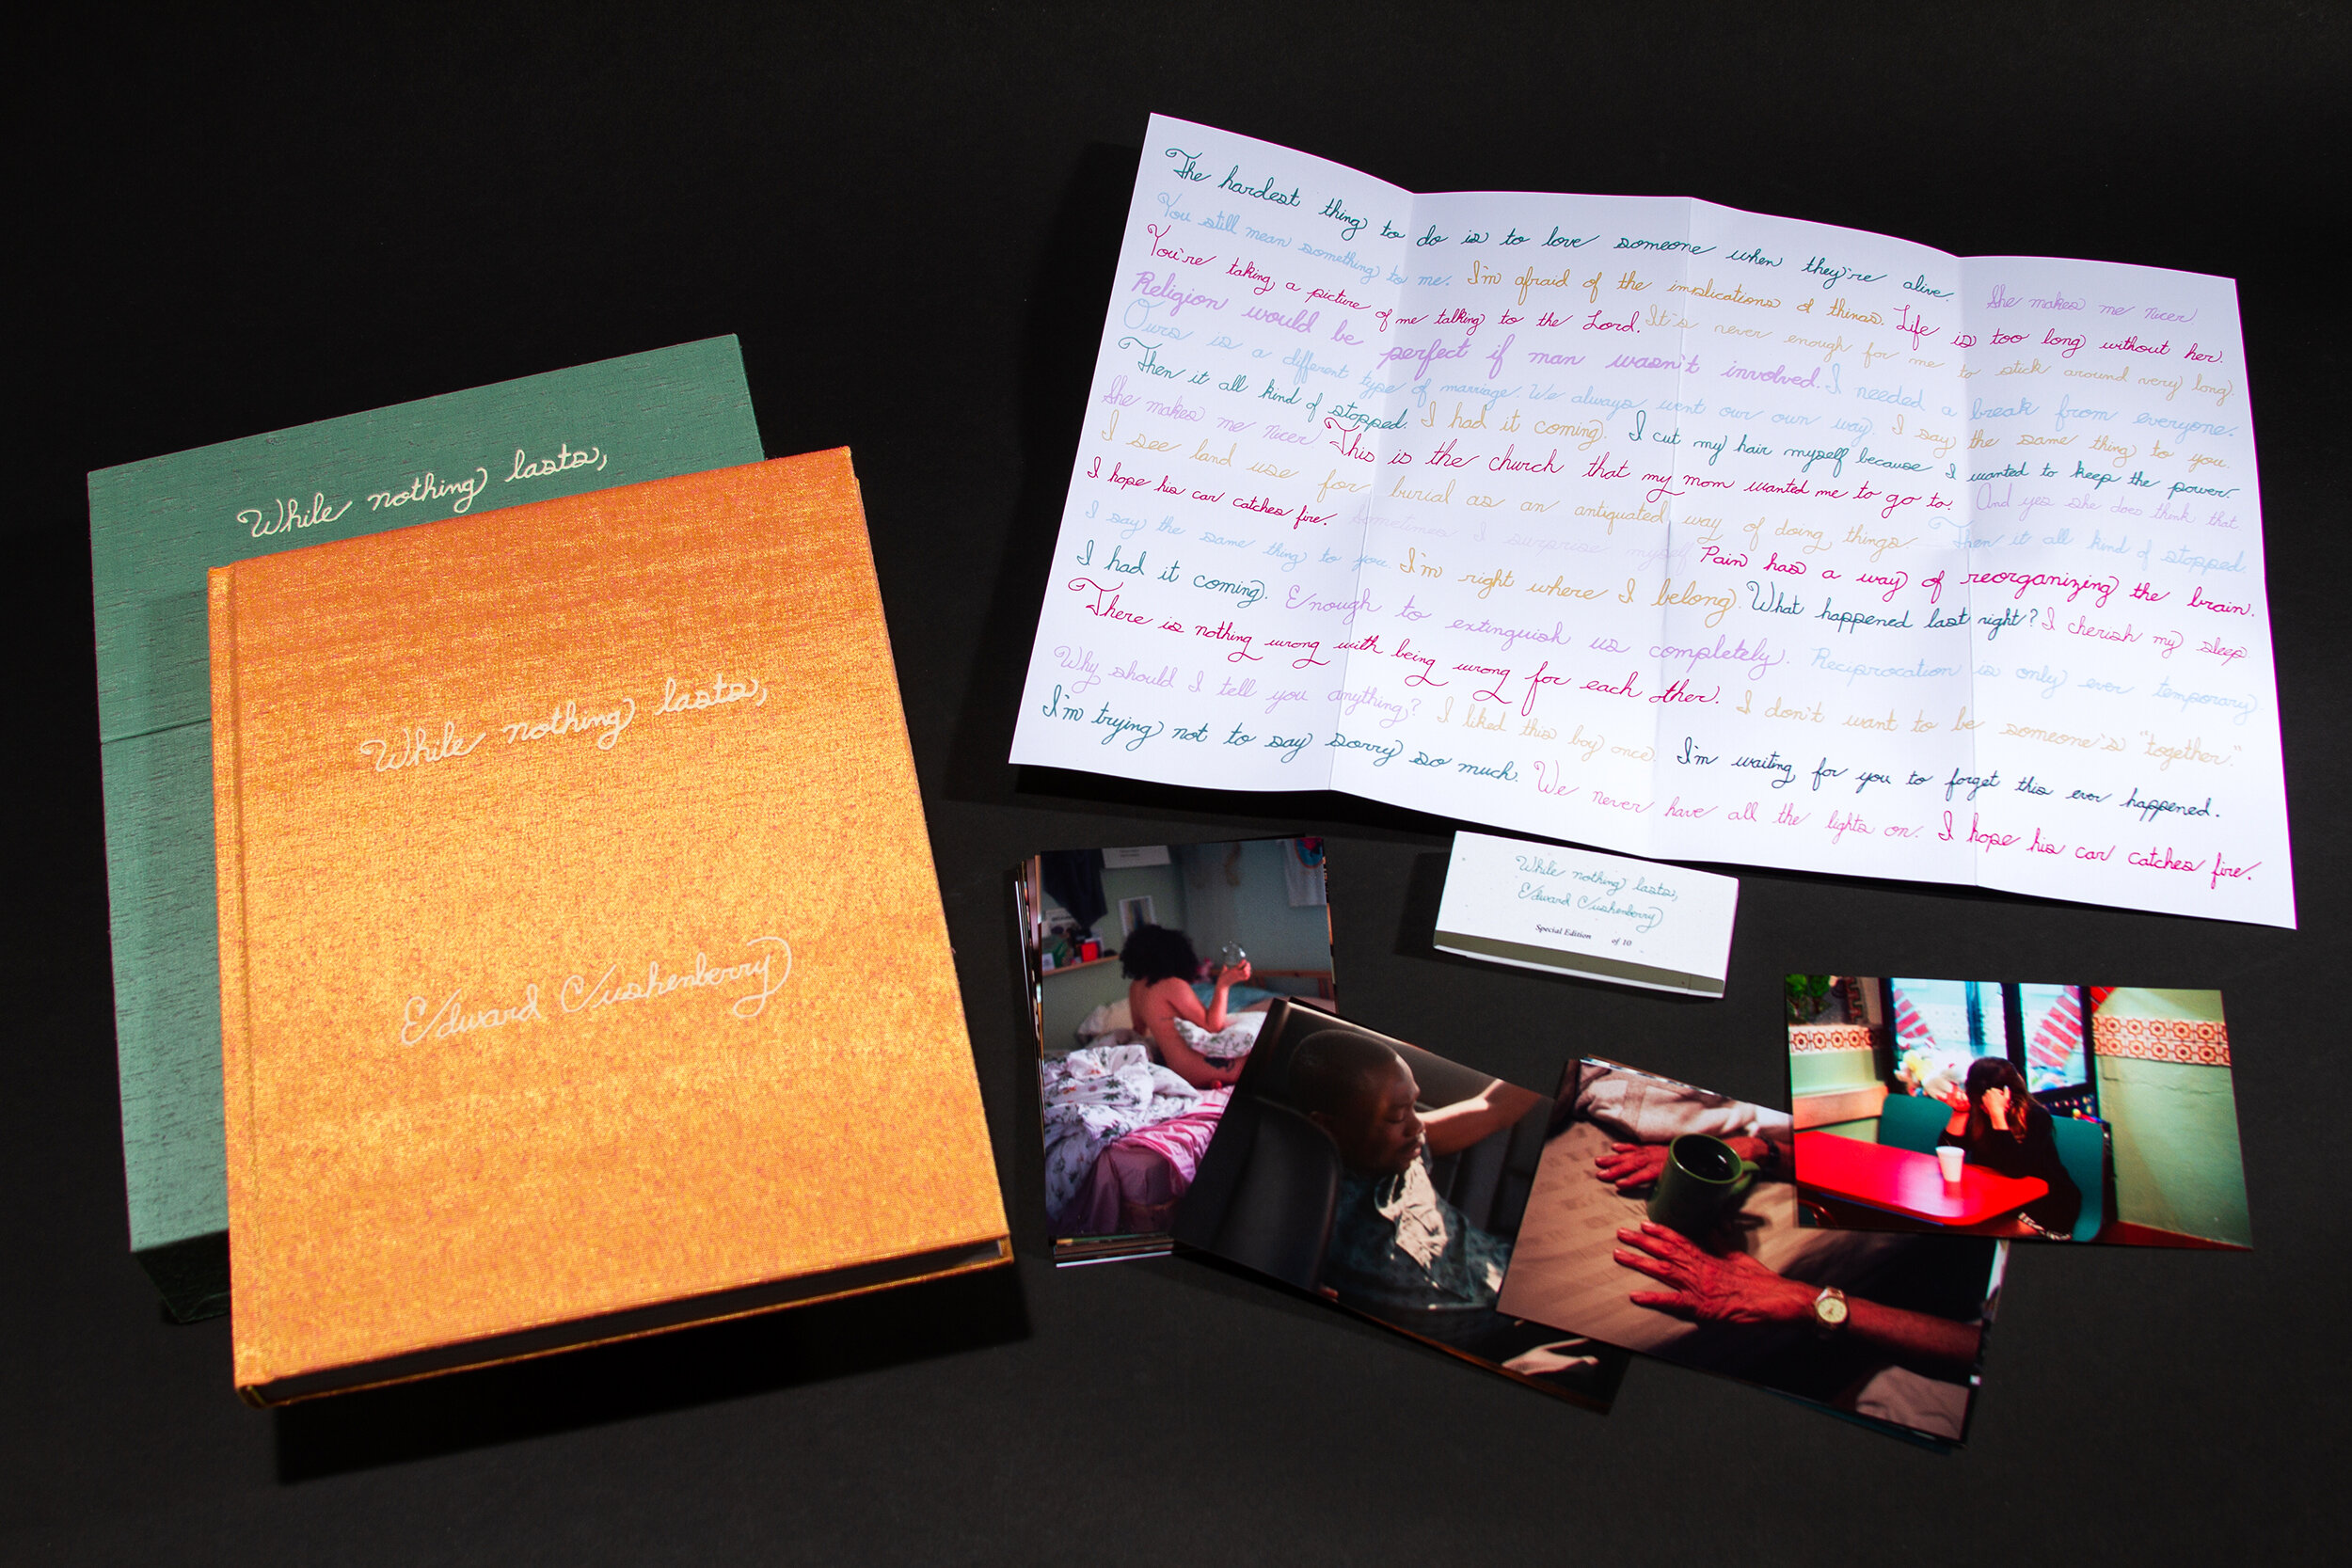 While nothing lasts,
While nothing lasts,
Edward Cushenberry
The hardest thing to do is to love someone when they're alive. She makes me nicer.
You still mean something to me. I'm afraid of the implications of things. Life is too long without her.
You're taking a picture of me talking to the Lord. It's never enough for me to stick around very long.
Religion would be perfect if man wasn't involved. I needed a break from everyone.
Ours is a different type of marriage. We always went our own way. I say the same thing to you.
Then it all kind of stopped. I had it coming. I cut my hair myself because I wanted to keep the power.
She makes me nicer. This is the church that my mom wanted me to go to. And yes she does think that.
I see land use for burial as an antiquated way of doing things. Then it all kind of stopped.
I hope his car catches fire. Sometimes I surprise myself Pain has a way of reorganizing the brain.
I say the same thing to you I'm right where I belong. What happened last night? I cherish my sleep
I had it coming. Enough to extinguish us completely. Reciprocation is only ever temporary.
There is nothing wrong with being wrong for each other. I don't want to be someone's "together."
Why should I tell you anything? I liked this boy once. I'm waiting for you to forget this ever happened.
I'm trying not to say sorry so much. We never have all the lights on. I hope his car catches fire.
While nothing lasts,
Edward Cushenberry
Special Edition of 10